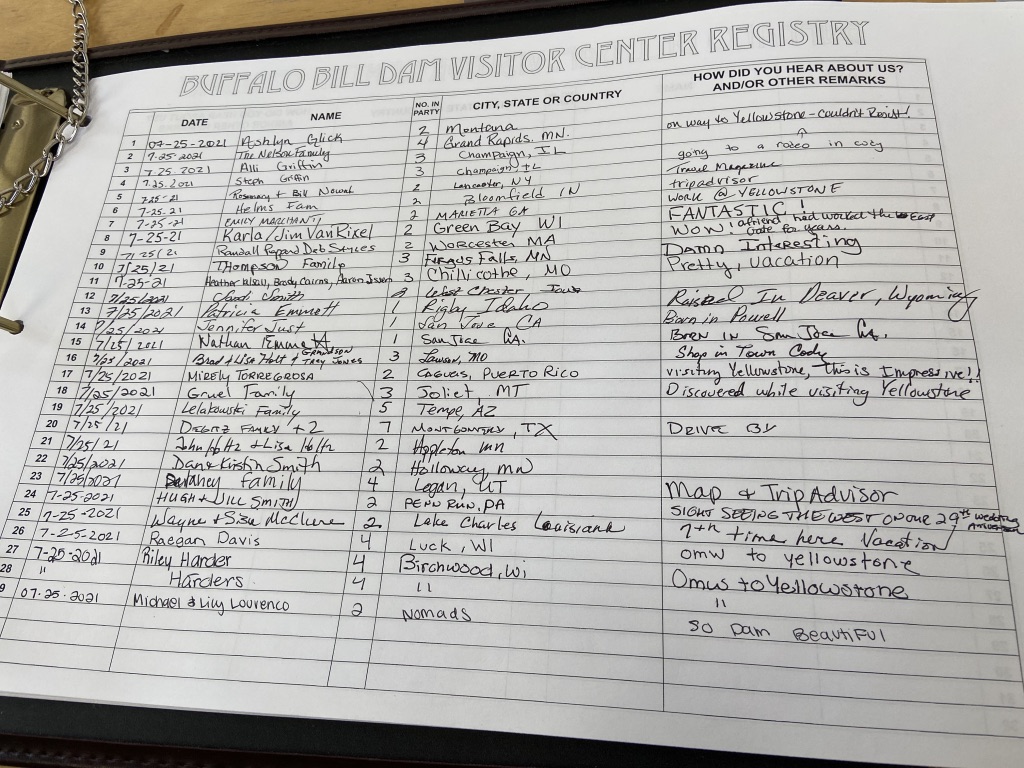 BUFFALO BILL DAM VISITOR CENTER REGISTRY
DATE NAME NO. IN PARTY CITY, STATE OR COUNTRY HOW DID YOU HEAR ABOUT US? AND/OR OTHER REMARKS
1 07-25-2021 Ashlyn Glick 2 Montana on way to Yellowstone - couldn't Resist!
2 7-25-2021 The Nelson Family 4 Grand Rapids, MN.
3 7-25-2021 Alli Griffin 3 Champaign, IL going to a rodeo in cody
4 7.25.2021 Steph Griffin 3 Champaign, IL Travel Magazine
5 7-25-21 Rosemary & Bill 2 Lancaster, NY tripadvisor
6 7-25-21 Helms Fam 2 Bloomfield IN WORK @ YELLOWSTONE
7 7-25-21 EMILY 2 MARIETTA GA FANTASTIC!
8 7-25-21 Karla/Jim VanRixel 2 Green Bay WI WOW! a friend had worked the East Gate for years.
9 7/25/21 Randall Deb 2 Worcester MA Damn Interesting
10 7/25/21 Thompson Family 3 Fergus Falls, MN Pretty, vacation
11 7-25-21 Heather Brady Cairns, Aaron 3 Chillicothe, MO
12 7/25/2021 Smith 2 West Chester Iowa
13 7/25/2021 Patricia Emmett 1 Rigby Idaho Raised In Deaver, Wyoming
14 7/25/2021 Jennifer Just 1 San Jose CA Born in Powell
15 7/25/2021 Nathan 1 San Jose CA. BORN IN San Jose CA.
16 7/25/2021 Brad & Lisa Holt & GRANDSON TREY JONES 3 Lawson, MO Shop in Town Cody
17 7/25/2021 MIRELY TORREGROSA 2 CAGUAS, PUERTO RICO visiting Yellowstone, This is Impressive!!
18 7/25/2021 Gruel Family 3 Joliet, MT Discovered while visiting Yellowstone
19 7/25/2021 Lelakowski Family 5 Tempe, AZ
20 7/25/21 FAMILY + 2 7 MONTGOMERY, TX DRIVE BY
21 7/25/21 John Holtz & Lisa Holtz 2 Appleton mn
22 7/25/2021 Dan & Kirstin Smith 2 Holloway, MN
23 7/25/2021 Family 4 Logan, UT Map & TripAdvisor
24 7-25-2021 HUGH & JILL SMITH 2 PENN RUN, PA SIGHT SEEING THE WEST ON OUR 29th WEDDING
25 7-25-2021 Wayne & Sisu McClure 2 Lake Charles Louisiana 7th time here Vacation
26 7-25-2021 Raegan Davis 4 Luck, WI omw to yellowstone
27 7-25-2021 Riley Harder 4 Birchwood, Wi Omw to Yellowstone
28 " Harders 4 " "
9 07.25.2021 Michael & Lily Lourenco 2 Nomads SO Dam BEAUTIFUL